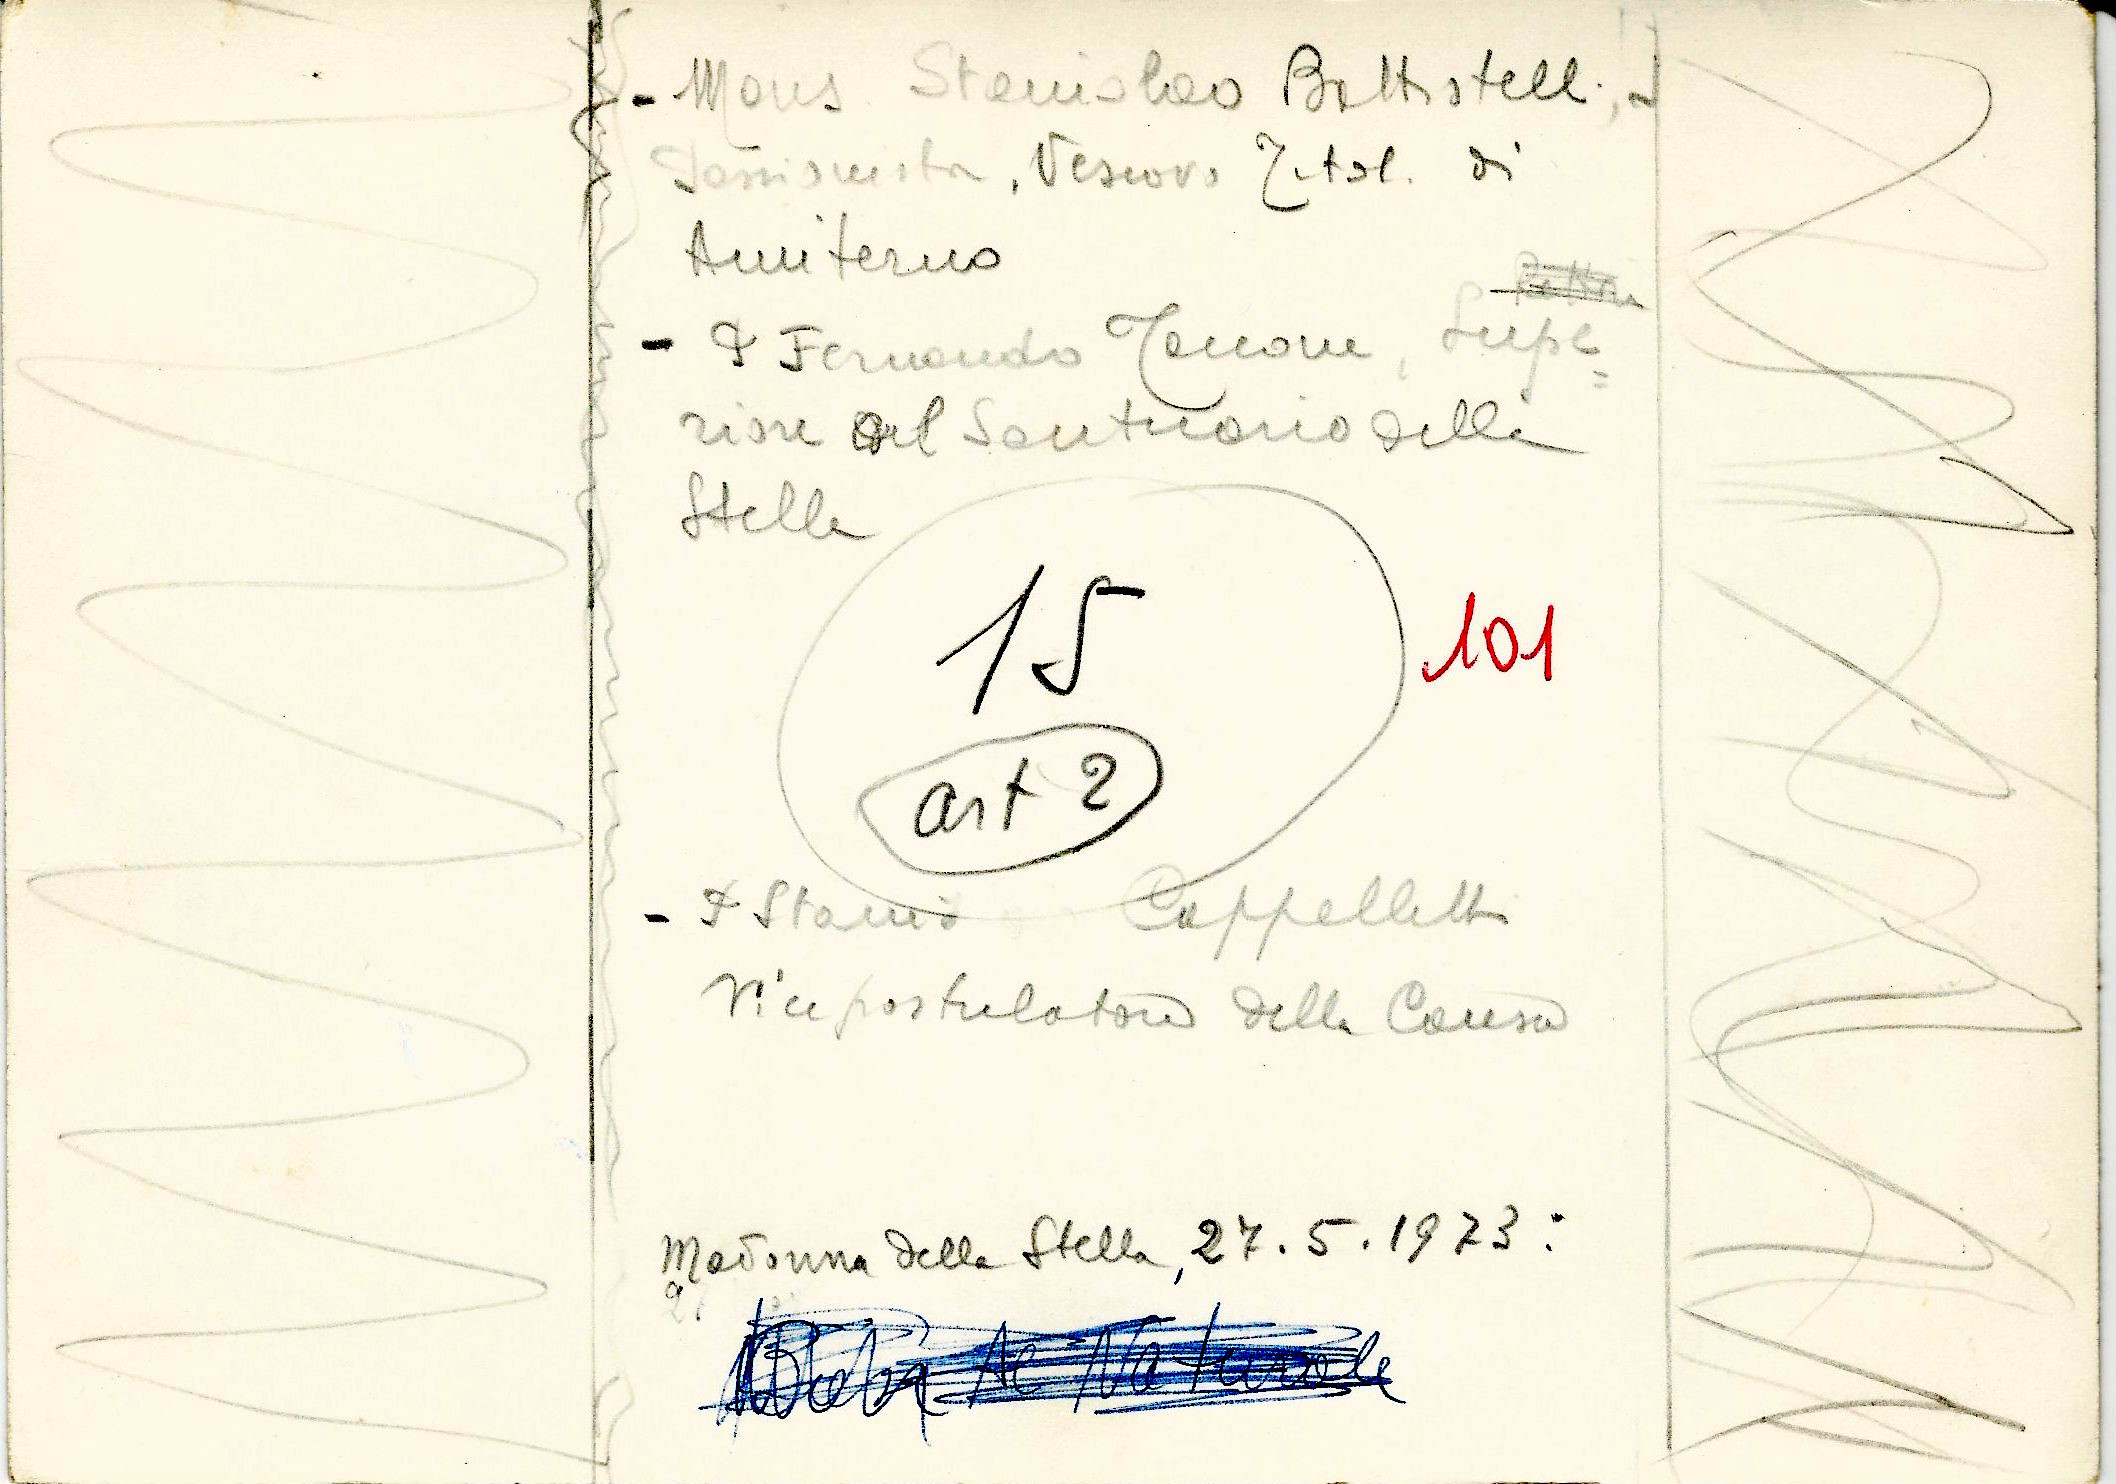 - Mons Stanislao Battistelli,
Passionista, Vescovo Titol. di
Amiterno
- P Fernando Taccone, Supe=
riore del Santuario della
Stella
15
101
art 2
- P Stanis Cappelletti
Vicepostulatore della Causa
Madonna della Stella, 27.5.1973:
Al Naturale